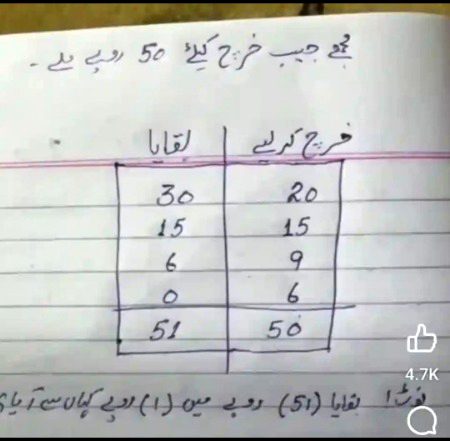 مجھے جیب خرچ کیلئے 50 روپے ملے ۔
خرچ کرلیے بقایا
20 30
15 15
9 6
6 0
50 51
نوٹ! بقایا (51) روپے میں (1) روپے کہاں سے آیا؟
4.7K